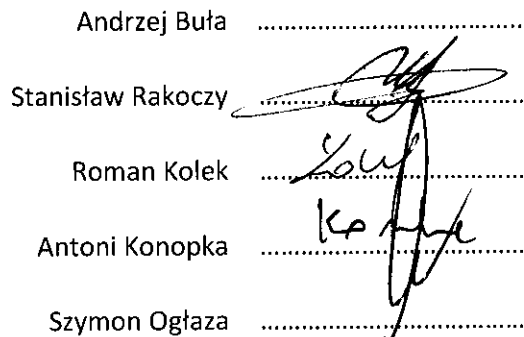 Andrzej Buła ........................................
Stanisław Rakoczy ........................................
Roman Kolek ........................................
Antoni Konopka ........................................
Szymon Ogłaza ........................................